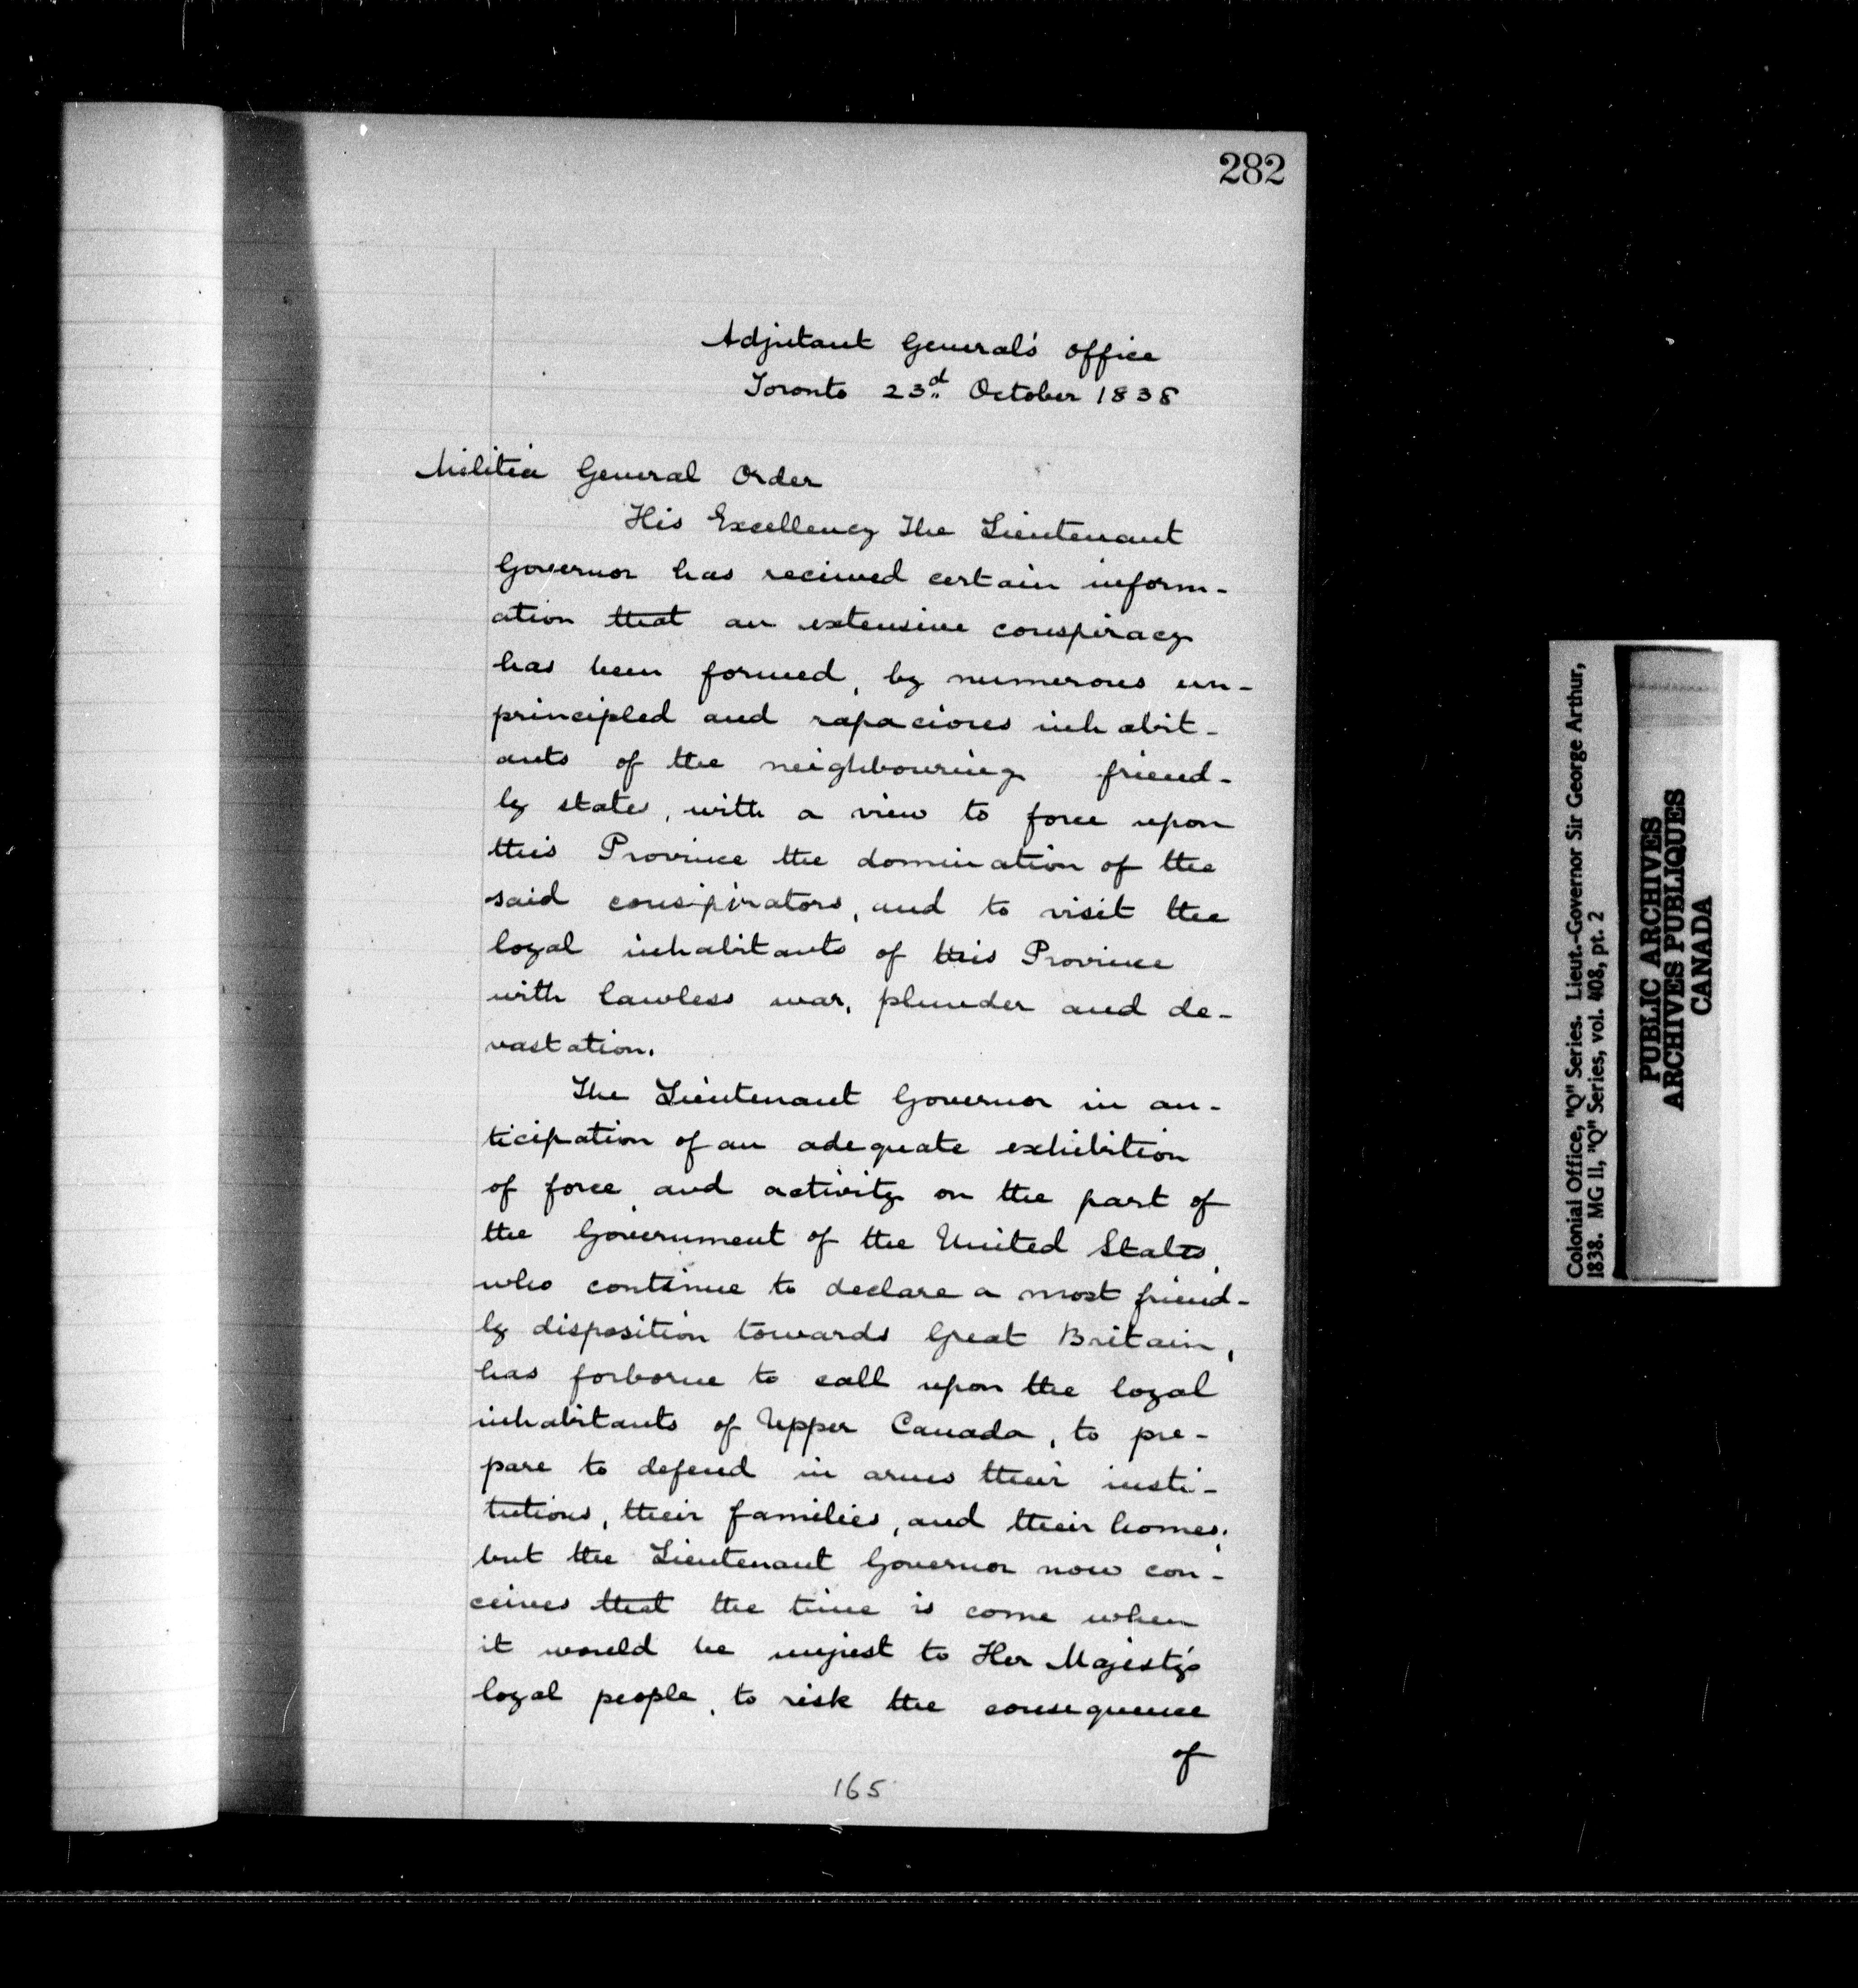 282
Adjutant General's Office
Toronto 23d October 1838
Militia General Order
His Excellency The Lieutenant
Governor has received certain inform-
ation that an extensive conspiracy
has been formed, by numerous un-
principled and rapacious inhabit-
ants of the neighbouring friend-
ly states, with a view to force upon
this Province the domination of the
said conspirators, and to visit the
loyal inhabitants of this Province
with lawless war, plunder and de-
vastation.
The Lieutenant Governor in an-
ticipation of an adequate exhibition
of force and activity on the part of
the Government of the United States,
who continue to declare a most friend-
ly disposition towards Great Britain,
has forborne to call upon the loyal
inhabitants of Upper Canada, to pre-
pare to defend in arms their insti-
tutions, their families, and their homes;
but the Lieutenant Governor now con-
ceives that the time is come when
it would be unjust to Her Majesty's
loyal people, to risk the consequence
of
165
Colonial Office, "Q" Series. Lieut.-Governor Sir George Arthur,
1838. MG 11, "Q" Series, vol. 408, pt. 2
PUBLIC ARCHIVES
ARCHIVES PUBLIQUES
CANADA